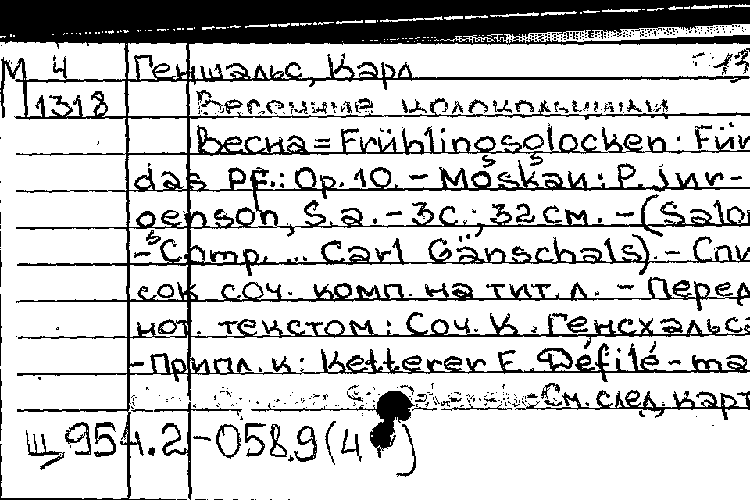 М 4 Геншальс, Карл 13
1318 Весенние колокольчики
Весна = Frühlingsglocken: Für
das Pf.: Op. 10. - Moskau: P. Jur-
genson, S. a. - 3 с.; 32 см. - (Salon
- Comp. ... Carl Gänschals). - Спи
сок соч. комп. на тит. л. - Перед
нот. текстом: Соч. К. Генсхальса
- Припл. к: Ketterer E. Défilé-ma
См. след. карт
Щ 954.2-058.9(4